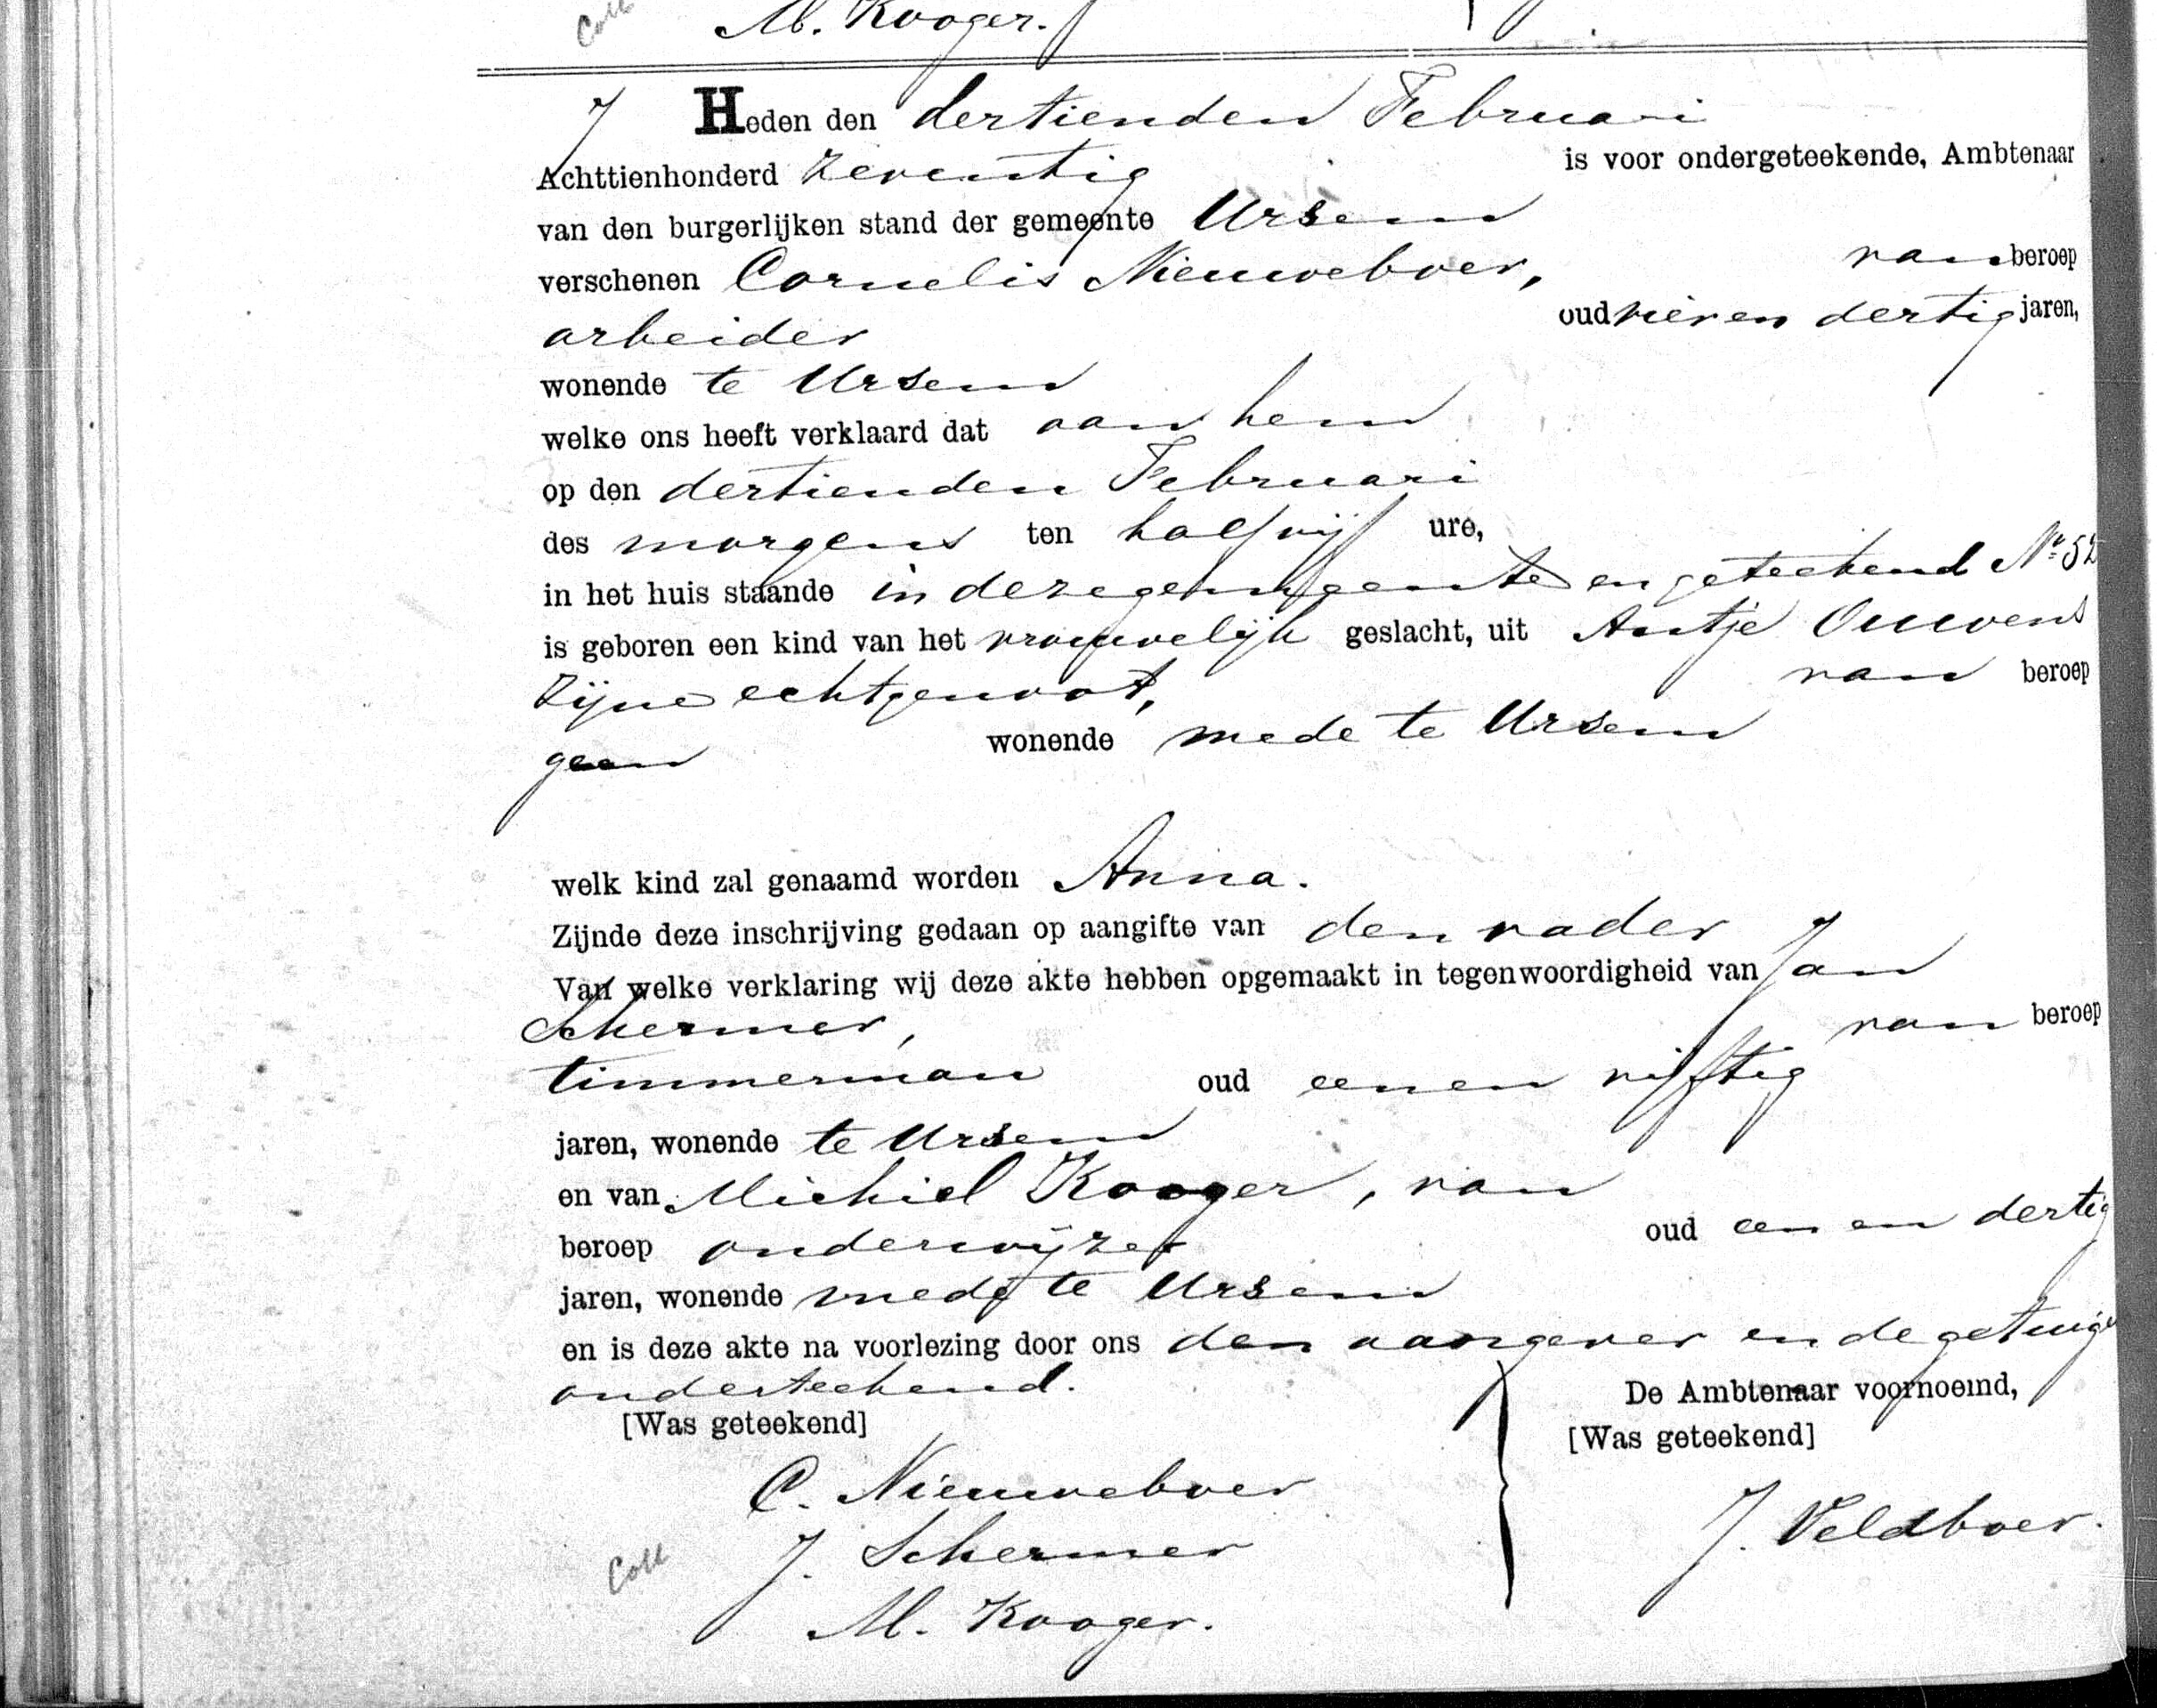 Coll M. Kooger.
7 Heden den dertienden Februari
Achttienhonderd zeventig is voor ondergeteekende, Ambtenaar
van den burgerlijken stand der gemeente Ursem
verschenen Cornelis Nieuweboer, van beroep
arbeider oud vier en dertig jaren,
wonende te Ursem
welke ons heeft verklaard dat aan hem
op den dertienden Februari
des morgens ten half vijf ure,
in het huis staande in deze gemeente en geteekend No. 52
is geboren een kind van het vrouwelijk geslacht, uit Antje Ouwens
zijne echtgenoot, van beroep
geen wonende mede te Ursem
welk kind zal genaamd worden Anna.
Zijnde deze inschrijving gedaan op aangifte van den vader
Van welke verklaring wij deze akte hebben opgemaakt in tegenwoordigheid van Jan
Schermer, van beroep
timmerman oud een en vijftig
jaren, wonende te Ursem
en van Michiel Kooger, van
beroep onderwijzer oud een en dertig
jaren, wonende mede te Ursem
en is deze akte na voorlezing door ons den aangever en de getuige
onderteekend.
[Was geteekend] De Ambtenaar voornoemd,
[Was geteekend]
C. Nieuweboer
J. Schermer J. Veldboer.
Coll M. Kooger.